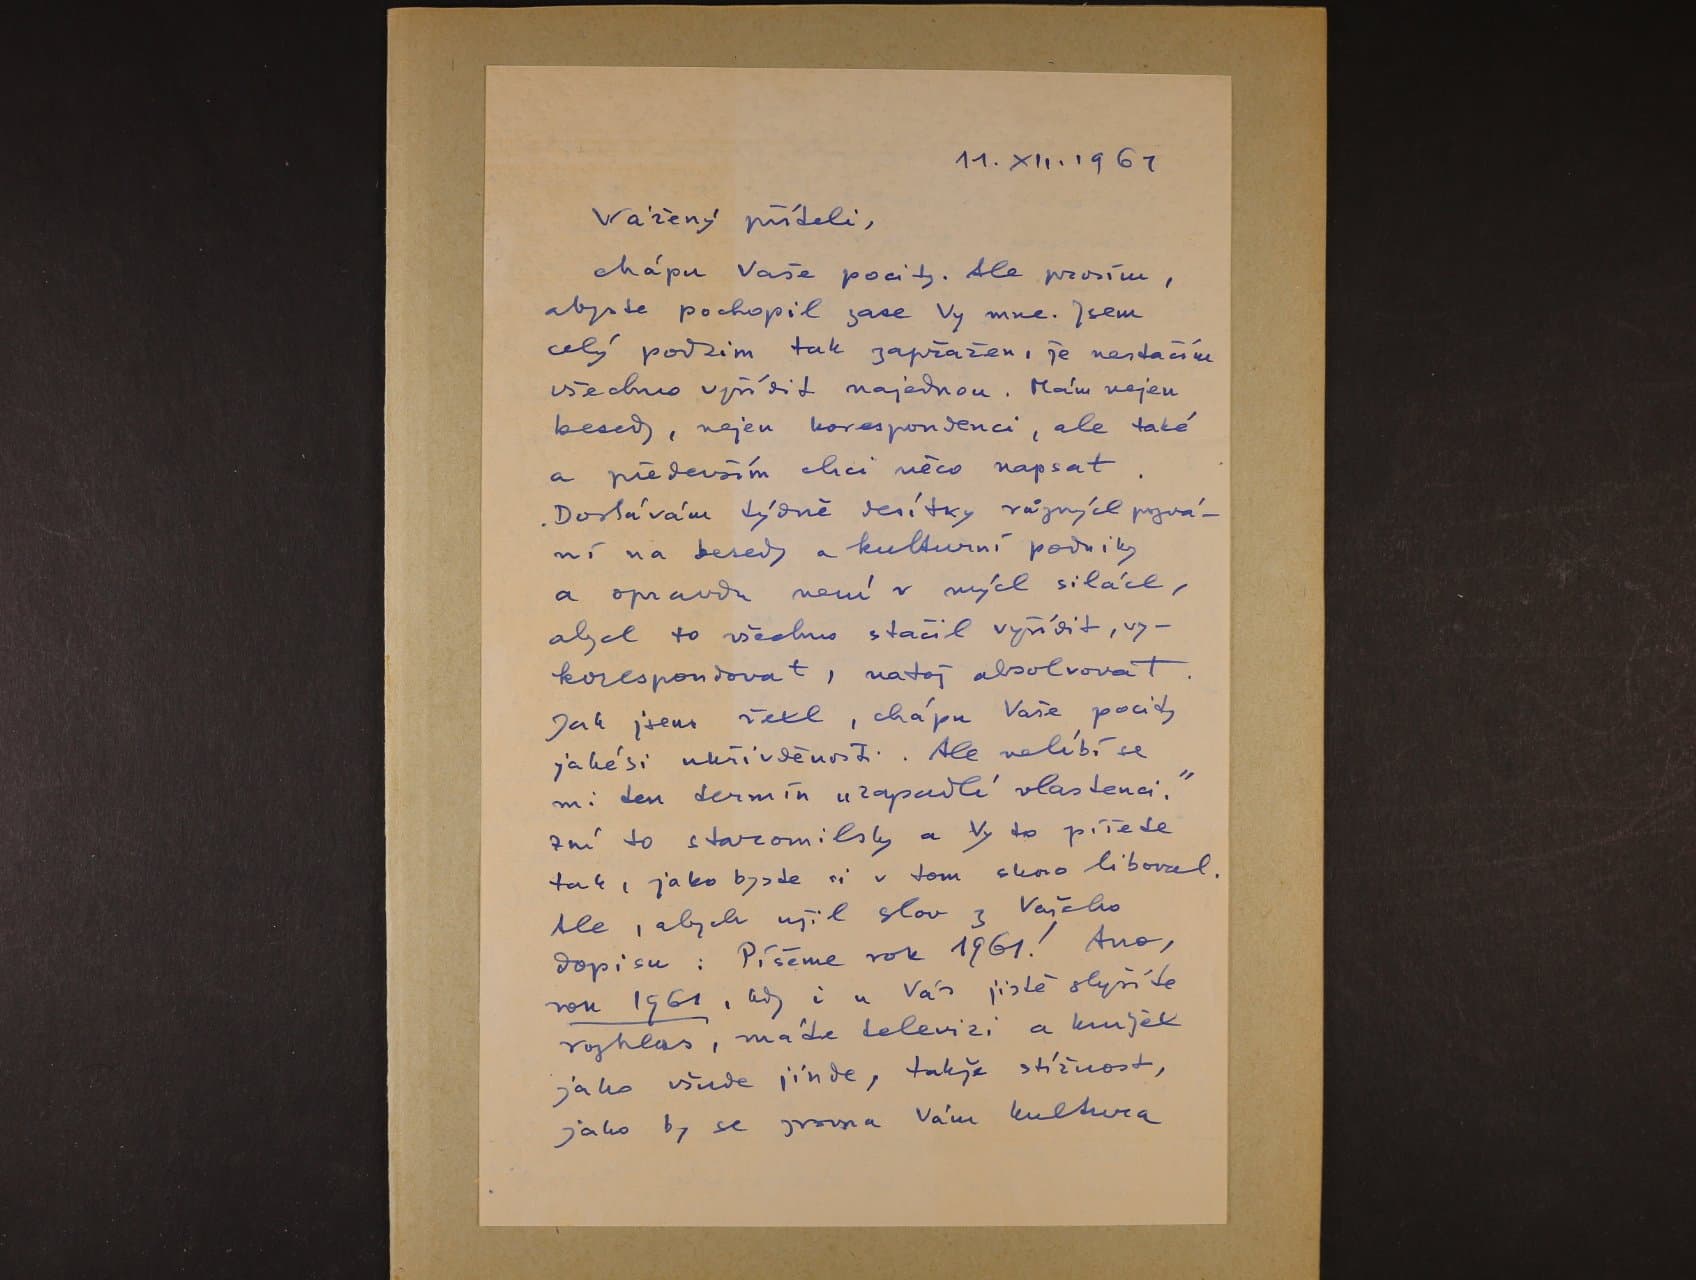 11. XII. 1961
Vážený příteli,
chápu Vaše pocity. Ale prosím,
abyste pochopil zase Vy mne. Jsem
celý podzim tak zapřažen, že nestačím
všechno vyřídit najednou. Mám nejen
besedy, nejen korespondenci, ale také
a především chci něco napsat.
Dostávám týdně desítky různých pozvá-
ní na besedy a kulturní podniky
a opravdu není v mých silách,
abych to všechno stačil vyřídit, vy-
korespondovat, natož absolvovat.
Jak jsem řekl, chápu Vaše pocity
jakési ukřivděnosti. Ale nelíbí se
mi ten termín „zapadlí vlastenci."
Zní to staromilsky a Vy to píšete
tak, jako byste si v tom skoro liboval.
Ale, abych užil slov z Vašeho
dopisu: Píšeme rok 1961! Ano,
rok 1961, kdy i u Vás jistě slyšíte
rozhlas, máte televizi a knížek
jako všude jinde, takže stížnost,
jako by se zrovna Vám kultura